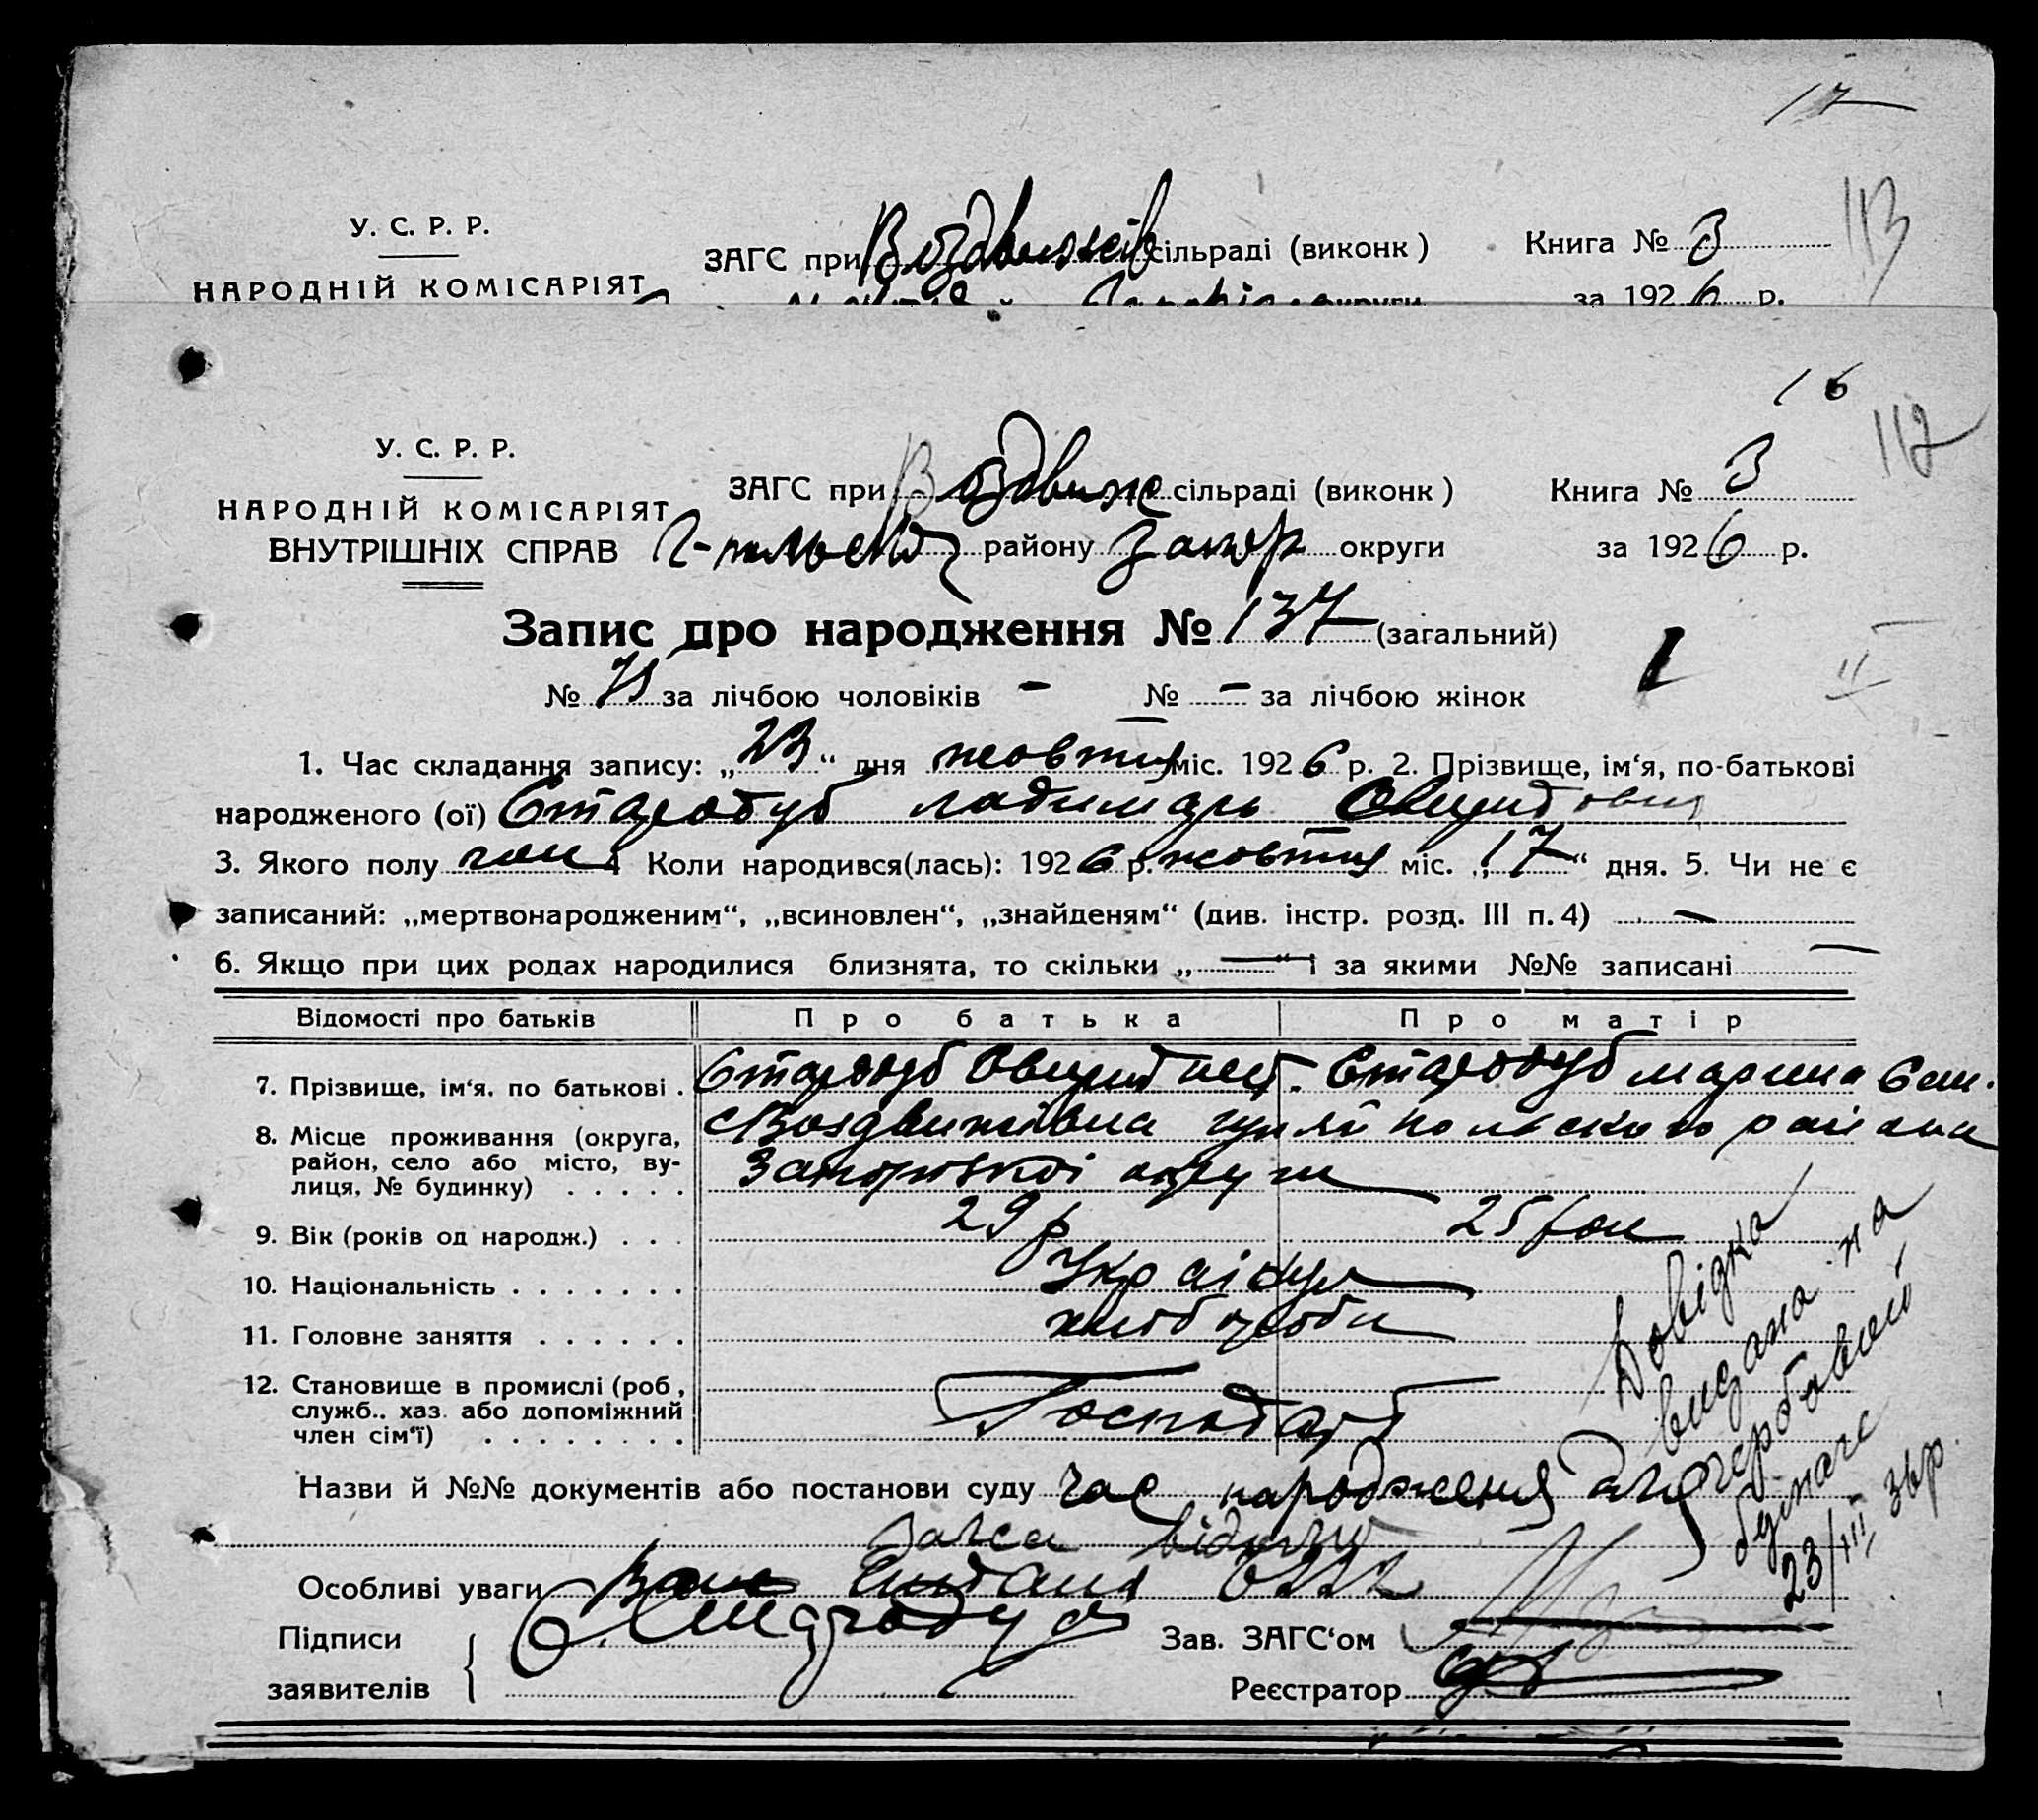 17
У. С. Р. Р.
ЗАГС при Воздвижів сільраді (виконк)
Книга № 3
113
НАРОДНІЙ КОМІСАРІЯТ
округи
за 1926 р.
16
112
У. С. Р. Р.
ЗАГС при Воздвиж сільраді (виконк)
Книга № 3
НАРОДНІЙ КОМІСАРІЯТ
ВНУТРІШНІХ СПРАВ Г-пільськ району Запор округи
за 1926 р.
Запис про народження № 137 (загальний)
№ 71 за лічбою чоловіків - № - за лічбою жінок
1. Час складання запису: „23“ дня жовтня міс. 1926 р. 2. Прізвище, ім‘я, по-батькові
народженого (ої) Стародуб ладимарь Овсрид
3. Якого полу чол 4 Коли народився(лась): 1926 р. жовтня міс. „17“ дня. 5. Чи не є
записаний: „мертвонародженим“, „всиновлен“, „знайденям“ (див. інстр. розд. III п. 4) —
6. Якщо при цих родах народилися близнята, то скільки „—“ і за якими №№ записані —
Відомості про батьків
Про батька
Про матір
7. Прізвище, ім‘я, по батькові . Стародуб Стародуб марина
8. Місце проживання (округа, Воздвижівка гуляйпольского района
район, село або місто, ву- Запорізької округи
лиця, № будинку) . . . . .
9. Вік (років од народж.) . . . 29 р 25 рок
10. Національність . . . . . . . Україц
11. Головне заняття . . . . . . хлібороби
12. Становище в промислі (роб, Господарь
служб., хаз. або допоміжний
член сім‘ї) . . . . . . . .
Назви й №№ документів або постанови суду час народження для
загса
Особливі уваги
Підписи
заявителів
Зав. ЗАГС‘ом
Реєстратор
Довідка
видана на
гербовий
бумаге
23/III 3